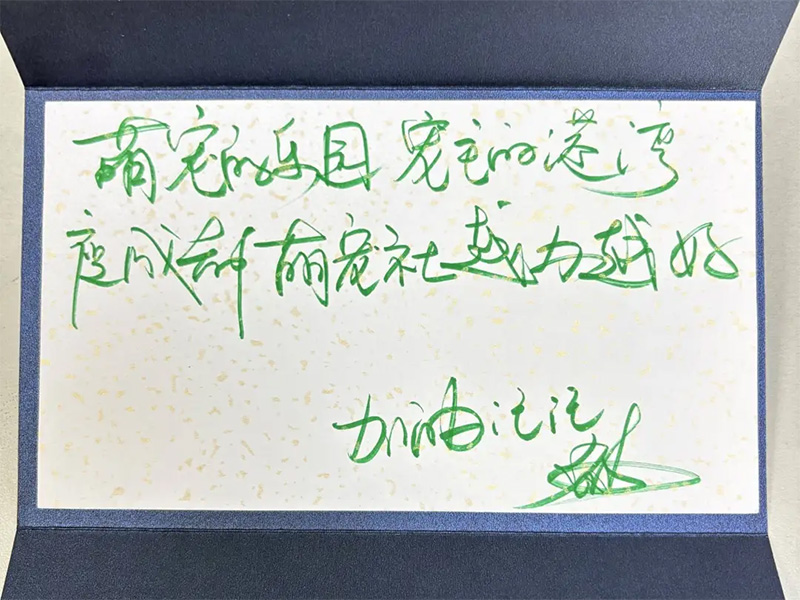 萌宠的乐园 宠主的港湾
萌宠社越办越好
加油汪汪